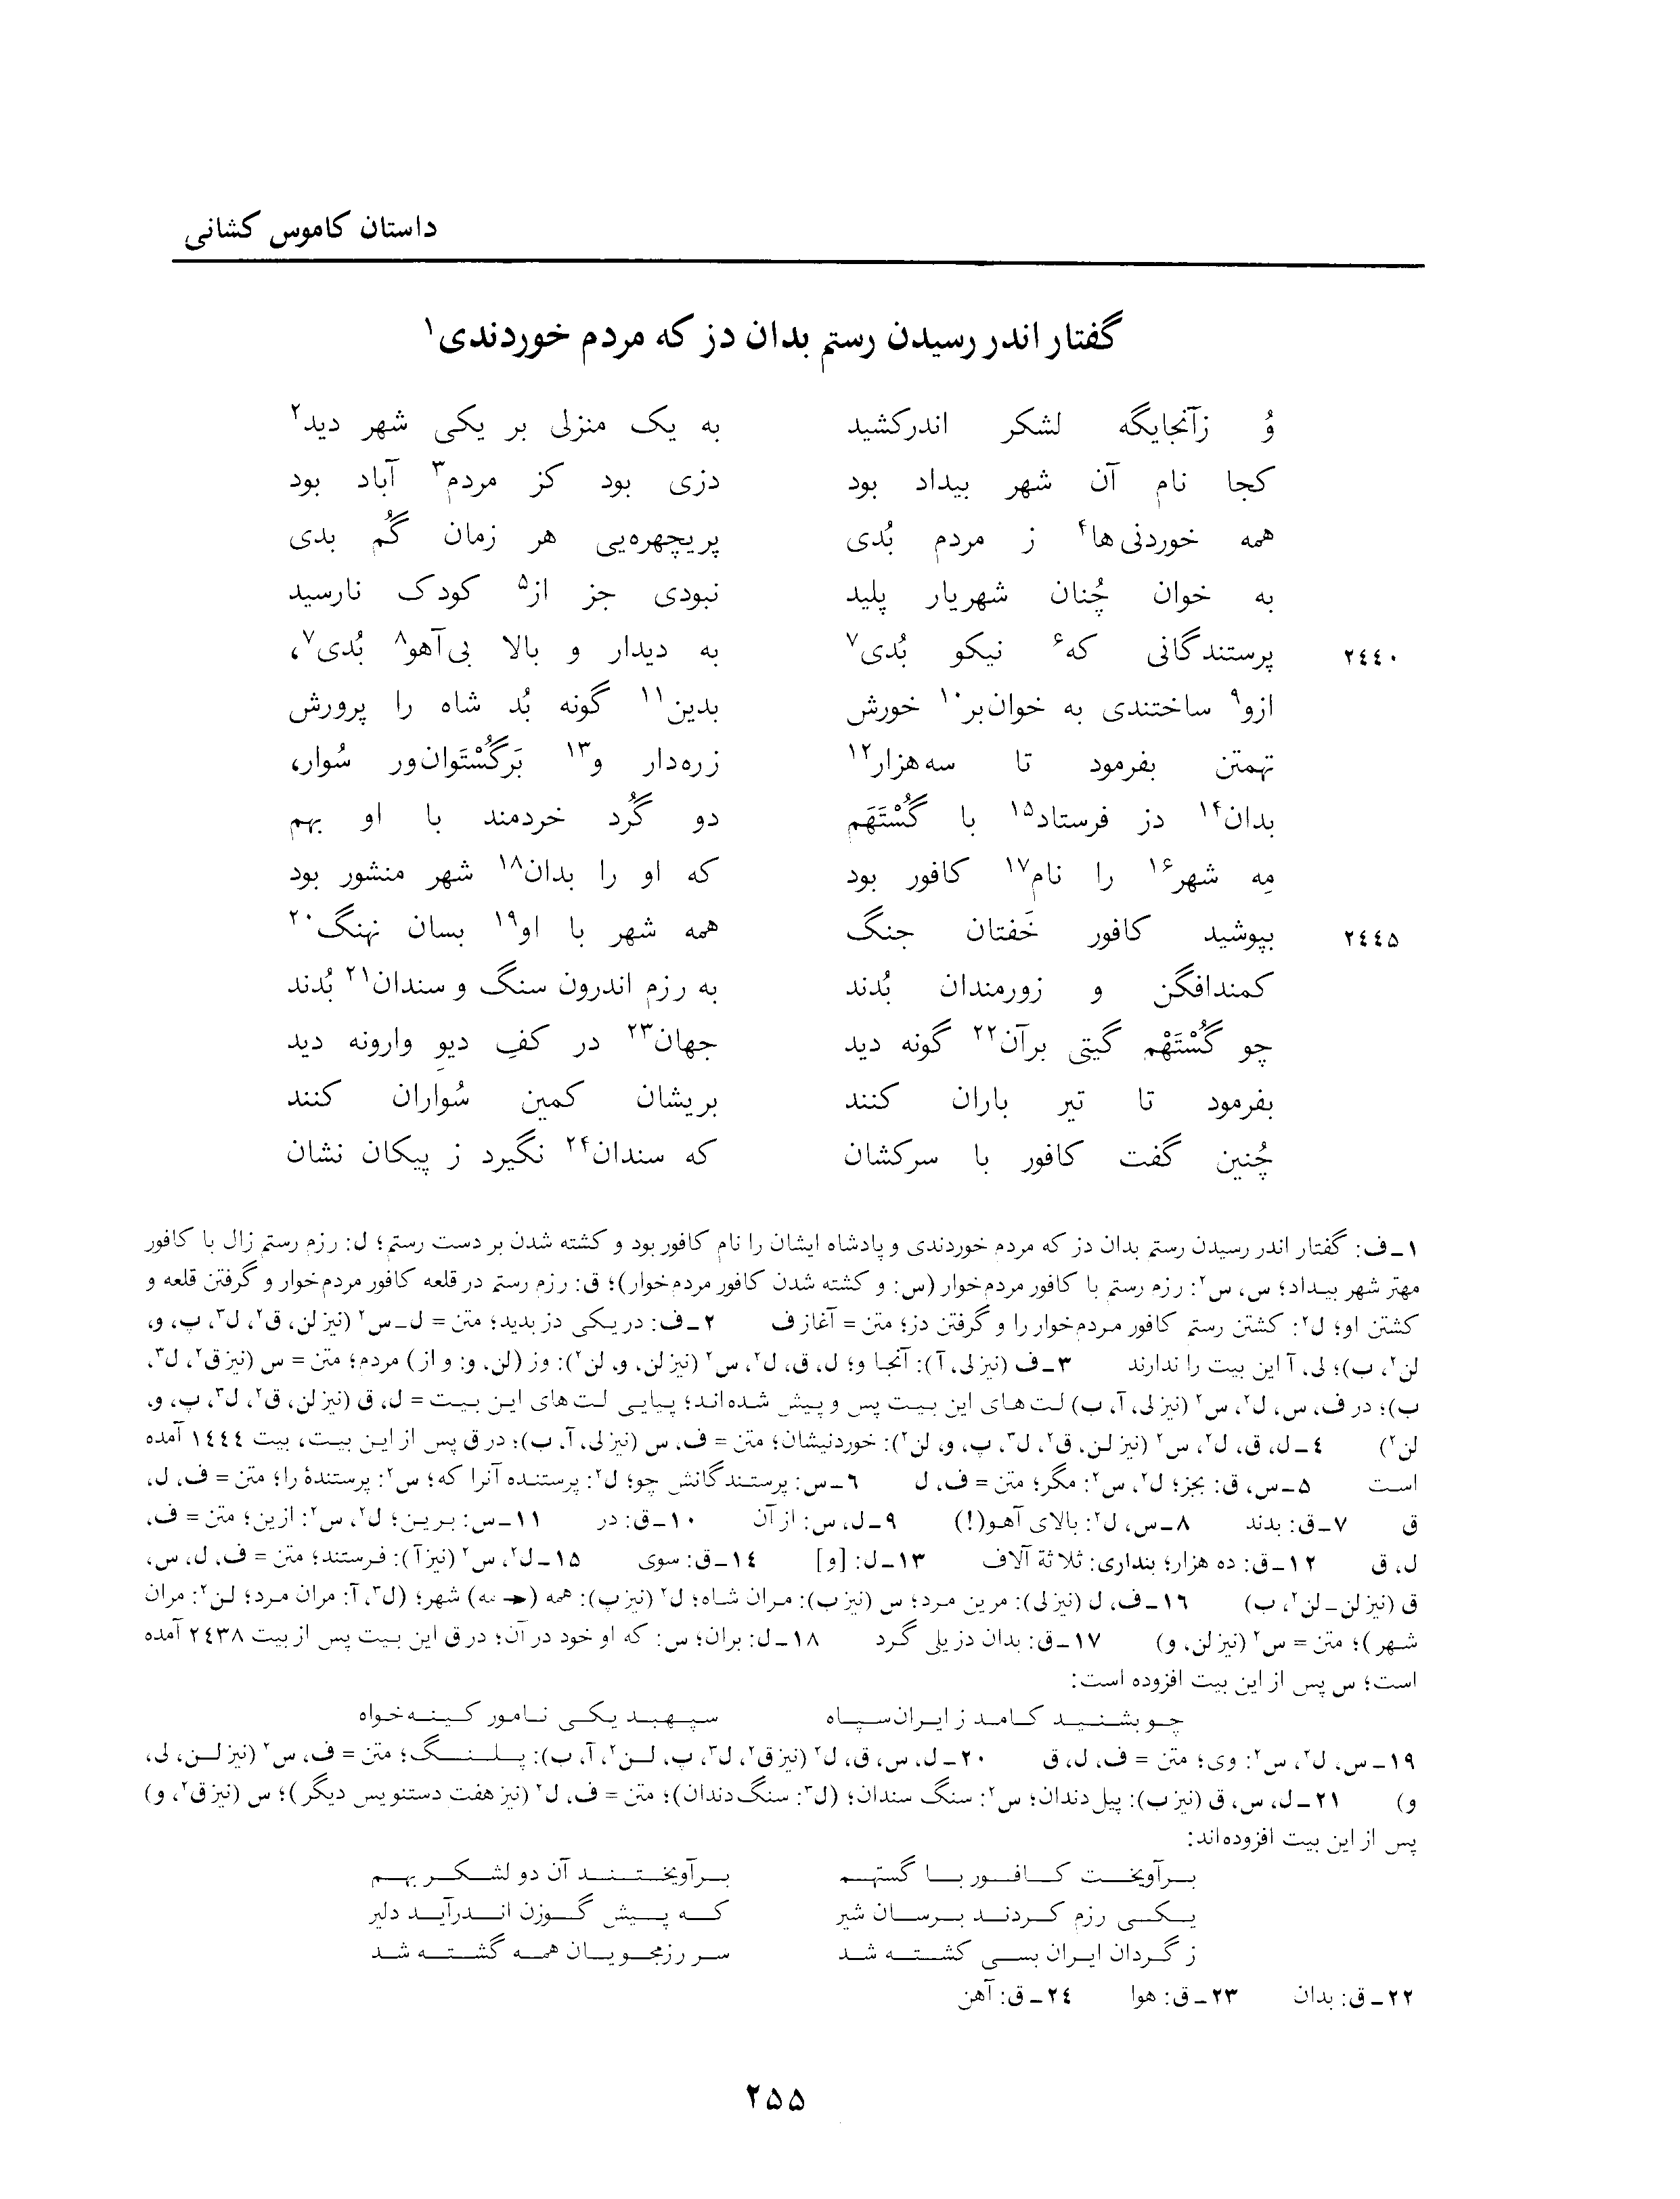 داستان کاموس کشانی
گفتار اندر رسیدن رستم بدان دز که مردم خوردندی۱
وُ زآنجایگه لشکر اندرکشید به یک منزلی بر یکی شهر دید۲
کجا نام آن شهر بیداد بود دزی بود کز مردم۳ آباد بود
همه خوردنی‌ها۴ ز مردم بُدی پریچهره‌یی هر زمان گُم بدی
به خوان چُنان شهریار پلید نبودی جز از۵ کودک نارسید
۲٤٤۰ پرستندگانی که۶ نیکو بُدی۷ به دیدار و بالا بی‌آهو۸ بُدی۷،
ازو۹ ساختندی به خوان‌بر۱۰ خورش بدین۱۱ گونه بُد شاه را پرورش
تهمتن بفرمود تا سه‌هزار۱۲ زره‌دار و۱۳ بَرگُسْتَوان‌ور سُوار،
بدان۱۴ دز فرستاد۱۵ با گُسْتَهَم دو گُرد خردمند با او بهم
مِه شهر۱۶ را نام۱۷ کافور بود که او را بدان۱۸ شهر منشور بود
۲٤٤۵ بپوشید کافور خَفتان جنگ همه شهر با او۱۹ بسان نهنگ۲۰
کمندافگن و زورمندان بُدند به رزم اندرون سنگ و سندان۲۱ بُدند
چو گُسْتَهْم گیتی برآن۲۲ گونه دید جهان۲۳ در کفِ دیوِ وارونه دید
بفرمود تا تیر باران کنند بریشان کمین سُواران کنند
چُنین گفت کافور با سرکشان که سندان۲۴ نگیرد ز پیکان نشان
۱ـ ف: گفتار اندر رسیدن رستم بدان دز که مردم خوردندی و پادشاه ایشان را نام کافور بود و کشته شدن بر دست رستم؛ ل: رزم رستم زال با کافور
مهتر شهر بیداد؛ س، س۲: رزم رستم با کافور مردم‌خوار (س: و کشته شدن کافور مردم‌خوار)؛ ق: رزم رستم در قلعه کافور مردم‌خوار و گرفتن قلعه و
کشتن او؛ ل۲: کشتن رستم کافور مردم‌خوار را و گرفتن دز؛ متن = آغاز ف ۲ـ ف: در یکی دز بدید؛ متن = ل ـ س۲ (نیز لن، ق۲، ل۳، پ، و،
لن۲، ب)؛ لی، آ این بیت را ندارند ۳ـ ف (نیز لی، آ): آنجا و؛ ل، ق، ل۲، س۲ (نیز لن، و، لن۲): وز (لن، و: و از) مردم؛ متن = س (نیز ق۲، ل۳،
ب)؛ در ف، س، ل۲، س۲ (نیز لی، آ، ب) لت‌های این بیت پس و پیش شده‌اند؛ پیایی لت‌های این بیت = ل، ق (نیز لن، ق۲، ل۳، پ، و،
لن۲) ٤ـ ل، ق، ل۲، س۲ (نیز لن، ق۲، ل۳، پ، و، لن۲): خوردنیشان؛ متن = ف، س (نیز لی، آ، ب)؛ در ق پس از این بیت، بیت ۱٤٤٤ آمده
است ۵ـ س، ق: بجز؛ ل۲، س۲: مگر؛ متن = ف، ل ٦ـ س: پرستندگانش چو؛ ل۲: پرستنده آنرا که؛ س۲: پرستندهٔ را؛ متن = ف، ل،
ق ۷ـ ق: بدند ۸ـ س، ل۲: بالای آهو(!) ۹ـ ل، س: از آن ۱۰ـ ق: در ۱۱ـ س: برین؛ ل۲، س۲: ازین؛ متن = ف،
ل، ق ۱۲ـ ق: ده هزار؛ بنداری: ثلاثة آلاف ۱۳ـ ل: [و] ۱٤ـ ق: سوی ۱۵ـ ل۲، س۲ (نیز آ): فرستند؛ متن = ف، ل، س،
ق (نیز لن ـ لن۲، ب) ۱٦ـ ف، ل (نیز لی): مرین مرد؛ س (نیز ب): مران شاه؛ ل۲ (نیز پ): همه (← مه) شهر؛ (ل۳، آ: مران مرد؛ لن۲: مران
شهر)؛ متن = س۲ (نیز لن، و) ۱۷ـ ق: بدان دز یلی گرد ۱۸ـ ل: بران؛ س: که او خود در آن؛ در ق این بیت پس از بیت ۲٤۳۸ آمده
است؛ س پس از این بیت افزوده است:
چو بشنید کامد ز ایران‌سپاه سپهبد یکی نامور کینه‌خواه
۱۹ـ س، ل۲، س۲: وی؛ متن = ف، ل، ق ۲۰ـ ل، س، ق، ل۲ (نیز ق۲، ل۳، پ، لن۲، آ، ب): پلنگ؛ متن = ف، س۲ (نیز لن، لی،
و) ۲۱ـ ل، س، ق (نیز ب): پیل دندان؛ س۲: سنگ سندان؛ (ل۳: سنگ دندان)؛ متن = ف، ل۲ (نیز هفت دستنویس دیگر)؛ س (نیز ق۲، و)
پس از این بیت افزوده‌اند:
برآویخت کافور با گستهم برآویختند آن دو لشکر بهم
یکی رزم کردند برسان شیر که پیش گوزن اندرآید دلیر
ز گردان ایران بسی کشته شد سر رزمجویان همه گشته شد
۲۲ـ ق: بدان ۲۳ـ ق: هوا ۲٤ـ ق: آهن
۲۵۵